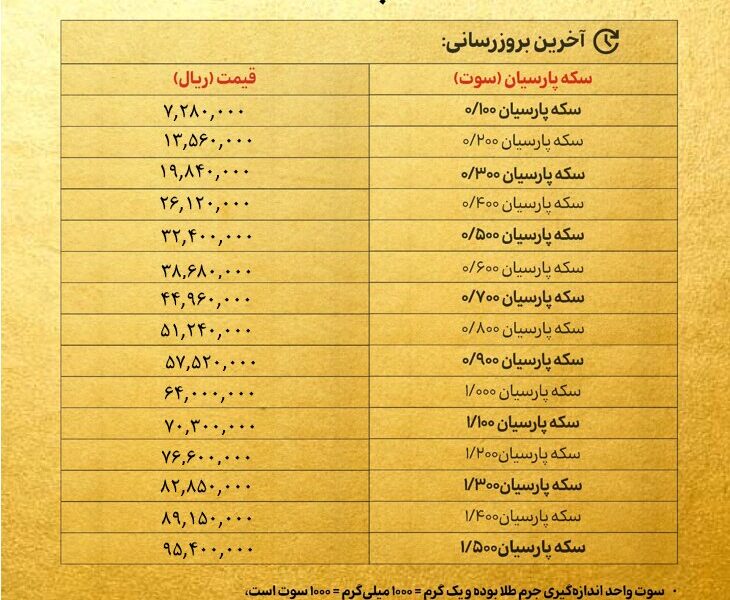 آخرین بروزرسانی:
سکه پارسیان (سوت) قیمت (ریال)
سکه پارسیان ۰/۱۰۰ ۷,۲۸۰,۰۰۰
سکه پارسیان ۰/۲۰۰ ۱۳,۵۶۰,۰۰۰
سکه پارسیان ۰/۳۰۰ ۱۹,۸۴۰,۰۰۰
سکه پارسیان ۰/۴۰۰ ۲۶,۱۲۰,۰۰۰
سکه پارسیان ۰/۵۰۰ ۳۲,۴۰۰,۰۰۰
سکه پارسیان ۰/۶۰۰ ۳۸,۶۸۰,۰۰۰
سکه پارسیان ۰/۷۰۰ ۴۴,۹۶۰,۰۰۰
سکه پارسیان ۰/۸۰۰ ۵۱,۲۴۰,۰۰۰
سکه پارسیان ۰/۹۰۰ ۵۷,۵۲۰,۰۰۰
سکه پارسیان ۱/۰۰۰ ۶۴,۰۰۰,۰۰۰
سکه پارسیان ۱/۱۰۰ ۷۰,۳۰۰,۰۰۰
سکه پارسیان۱/۲۰۰ ۷۶,۶۰۰,۰۰۰
سکه پارسیان۱/۳۰۰ ۸۲,۸۵۰,۰۰۰
سکه پارسیان۱/۴۰۰ ۸۹,۱۵۰,۰۰۰
سکه پارسیان۱/۵۰۰ ۹۵,۴۰۰,۰۰۰
· سوت واحد اندازه‌گیری جرم طلا بوده و یک گرم = ۱۰۰۰ میلی‌گرم = ۱۰۰۰ سوت است،